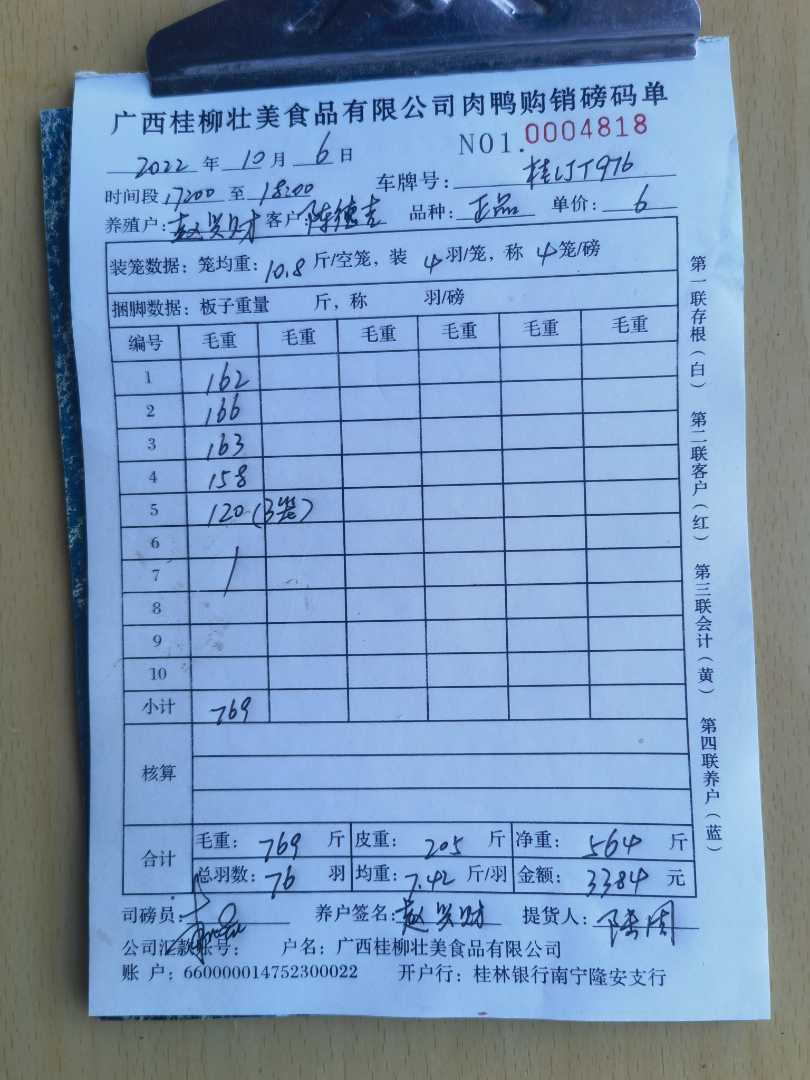 广西桂柳壮美食品有限公司肉鸭购销磅码单
2022 年 10 月 6 日 NO1.0004818
时间段 17:00 至 18:00 车牌号: 桂LJT976
养殖户: 赵兴财 客户: 陈德志 品种: 正品 单价: 6
装笼数据: 笼均重: 10.8 斤/空笼, 装 4 羽/笼, 称 4 笼/磅
捆脚数据: 板子重量 斤, 称 羽/磅
编号 毛重 毛重 毛重 毛重 毛重 毛重
1 162
2 166
3 163
4 158
5 120 (3笼)
6
7
8
9
10
小计 769
核算
合计 毛重: 769 斤 皮重: 205 斤 净重: 564 斤
总羽数: 76 羽 均重: 7.42 斤/羽 金额: 3384 元
司磅员: 养户签名: 赵兴财 提货人:
公司汇款账号: 户名: 广西桂柳壮美食品有限公司
账 户: 660000014752300022 开户行: 桂林银行南宁隆安支行
第一联存根(白) 第二联客户(红) 第三联会计(黄) 第四联养户(蓝)